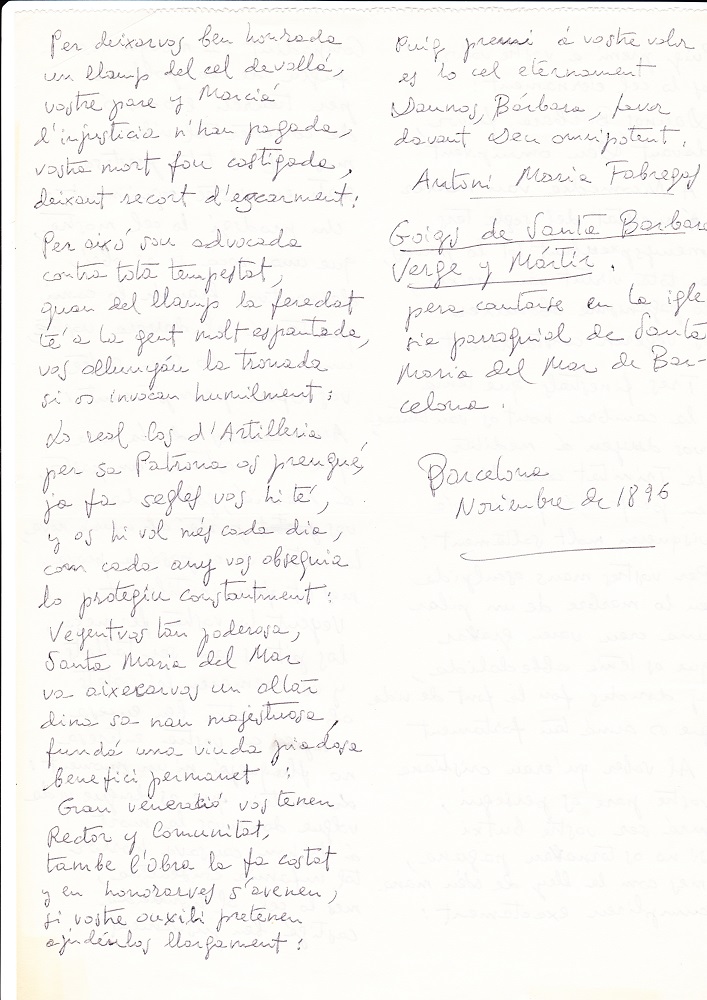 Per deixarvos ben honrada
un llamp del cel devallá,
vostre pare y Marciá
l'injusticia n'han pagada,
vostra mort fou castigada,
deixant recort d'escarment:
Per aixó sou advocada
contra tota tempestat,
quan del llamp la feredat
té a la gent molt espantada,
vos allunyáu la tronada
si os invocan humilment:
Lo real Cos d'Artilleria
per sa Patrona os prengué,
ja fa segles vos hi té,
y os hi vol més cada dia,
com cada any vos obsequia
lo protegiu constantment:
Vegentvos tan poderosa,
Santa Maria del Mar
va aixecarvos un altar
dins sa nau majestuosa,
fundá una viuda piadosa
benefici permanet :
Gran veneració vos tenen
Rector y Comunitat,
tambe l'Obra la fa costat
y en honorarvos s'avenen,
si vostre auxili pretenen
ajudéulos llargament:
Puig premi á vostre valor
es lo cel eternament
Daunos, Bárbara, favor
davant Deu omnipotent.
Antoni Maria Fabregas
Goigs de Santa Barbara
Verge y Mártir.
pera cantarse en la igle
sia parroquial de Santa
Maria del Mar de Bar-
celona.
Barcelona
Noviembre de 1896